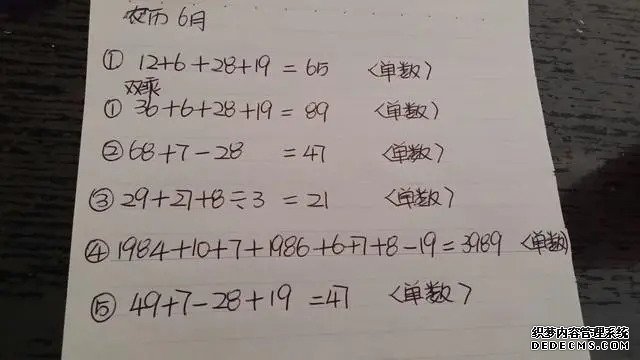 农历 6月
① 12+6+28+19=65 〈单数〉
双乘
① 36+6+28+19=89 〈单数〉
② 68+7-28 =47 〈单数〉
③ 29+27+8÷3 =21 〈单数〉
④ 1984+10+7+1986+6+7+8-19=3989 〈单数〉
⑤ 49+7-28+19 =47 〈单数〉
织梦内容管理系统
DEDECMS.COM